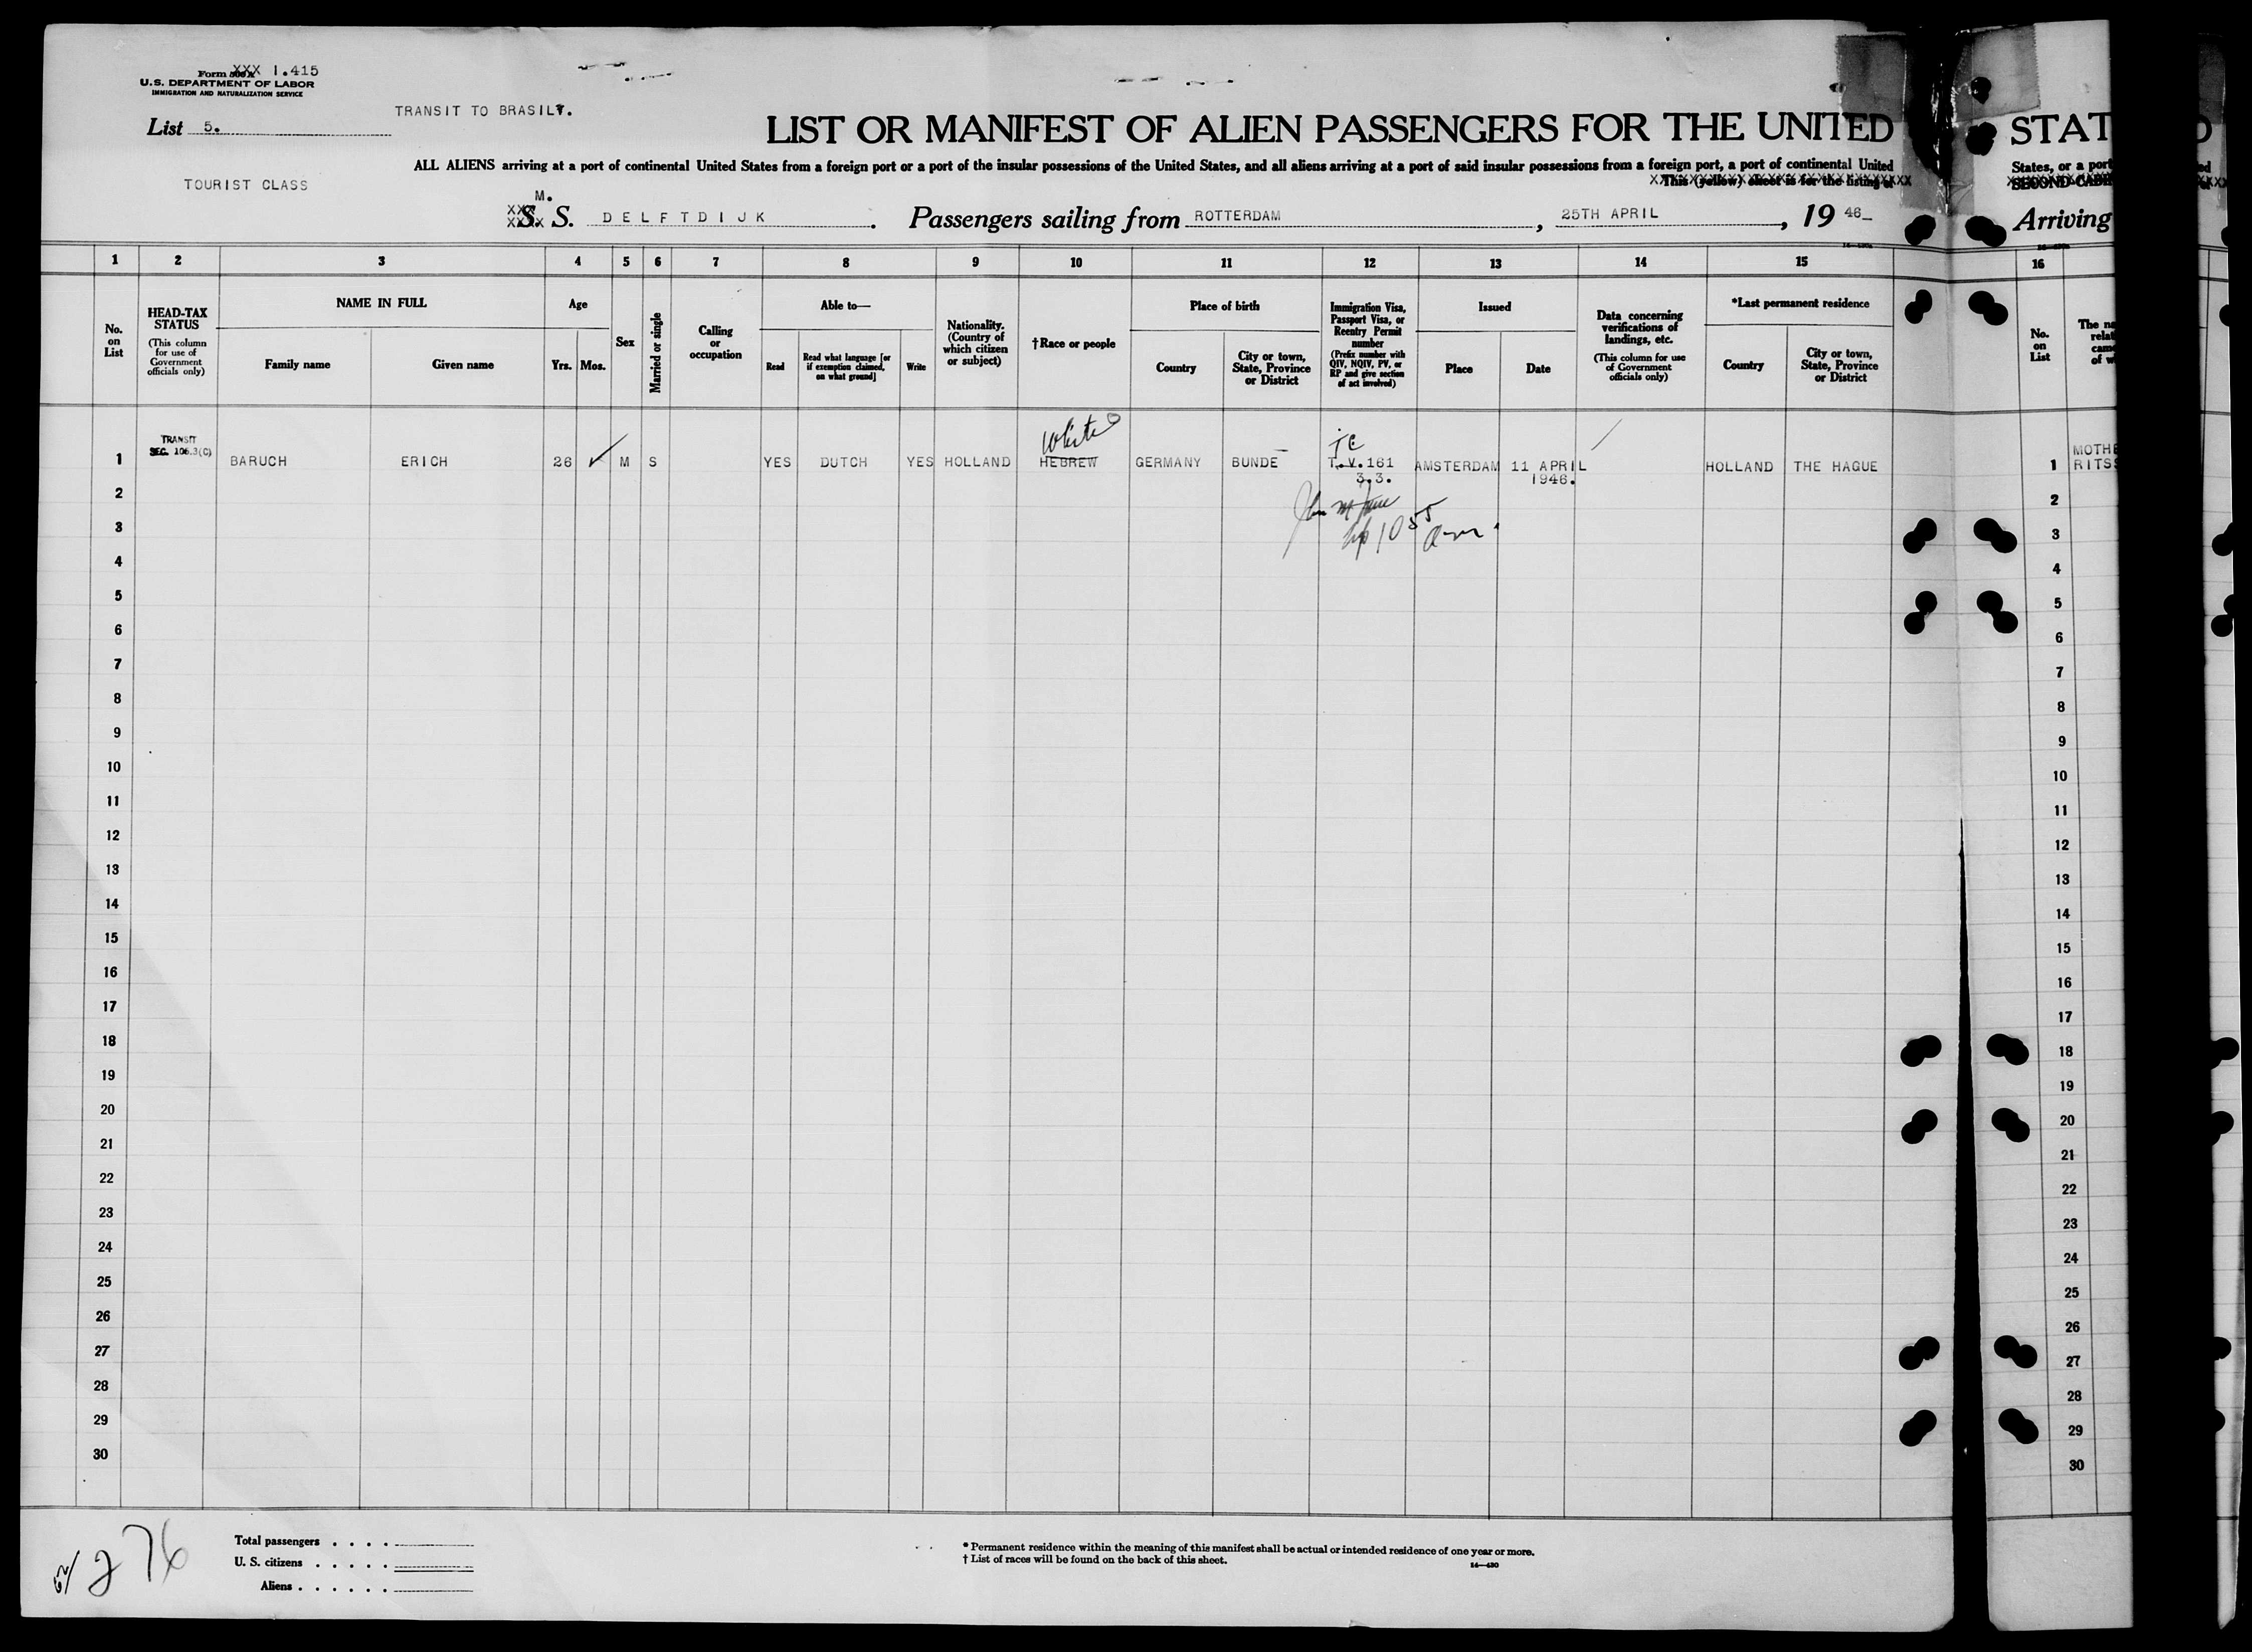 Form XXX 1.415
U.S. DEPARTMENT OF LABOR
IMMIGRATION AND NATURALIZATION SERVICE
TRANSIT TO BRASIL.
List 5.
LIST OR MANIFEST OF ALIEN PASSENGERS FOR THE UNITED
STAT
ALL ALIENS arriving at a port of continental United States from a foreign port or a port of the insular possessions of the United States, and all aliens arriving at a port of said insular possessions from a foreign port, a port of continental United
States, or a port
This (yellow) sheet is for the listing of
TOURIST CLASS
M.
S. S. DELFTDIJK. Passengers sailing from ROTTERDAM, 25TH APRIL, 19 46
Arriving
1 2 3 4 5 6 7 8 9 10 11 12 13 14 15 16
No. on List
HEAD-TAX STATUS
(This column for use of Government officials only)
NAME IN FULL
Family name Given name
Age
Yrs. Mos.
Sex
Married or single
Calling or occupation
Able to—
Read
Read what language [or if exemption claimed, on what ground]
Write
Nationality. (Country of which citizen or subject)
†Race or people
Place of birth
Country
City or town, State, Province or District
Immigration Visa, Passport Visa, or Reentry Permit number
(Prefix number with QIV, NQIV, PV, or RP and give section of act involved)
Issued
Place Date
Data concerning verifications of landings, etc.
(This column for use of Government officials only)
*Last permanent residence
Country
City or town, State, Province or District
No. on List
White
TRANSIT
SEC. 106.3(C)
1 BARUCH ERICH 26 M S YES DUTCH YES HOLLAND HEBREW GERMANY BUNDE T.V.161 AMSTERDAM 11 APRIL HOLLAND THE HAGUE 1
3.3. 1946.
2 2
3 3
4 4
5 5
6 6
7 7
8 8
9 9
10 10
11 11
12 12
13 13
14 14
15 15
16 16
17 17
18 18
19 19
20 20
21 21
22 22
23 23
24 24
25 25
26 26
27 27
28 28
29 29
30 30
276
Total passengers
U. S. citizens
Aliens
* Permanent residence within the meaning of this manifest shall be actual or intended residence of one year or more.
† List of races will be found on the back of this sheet.